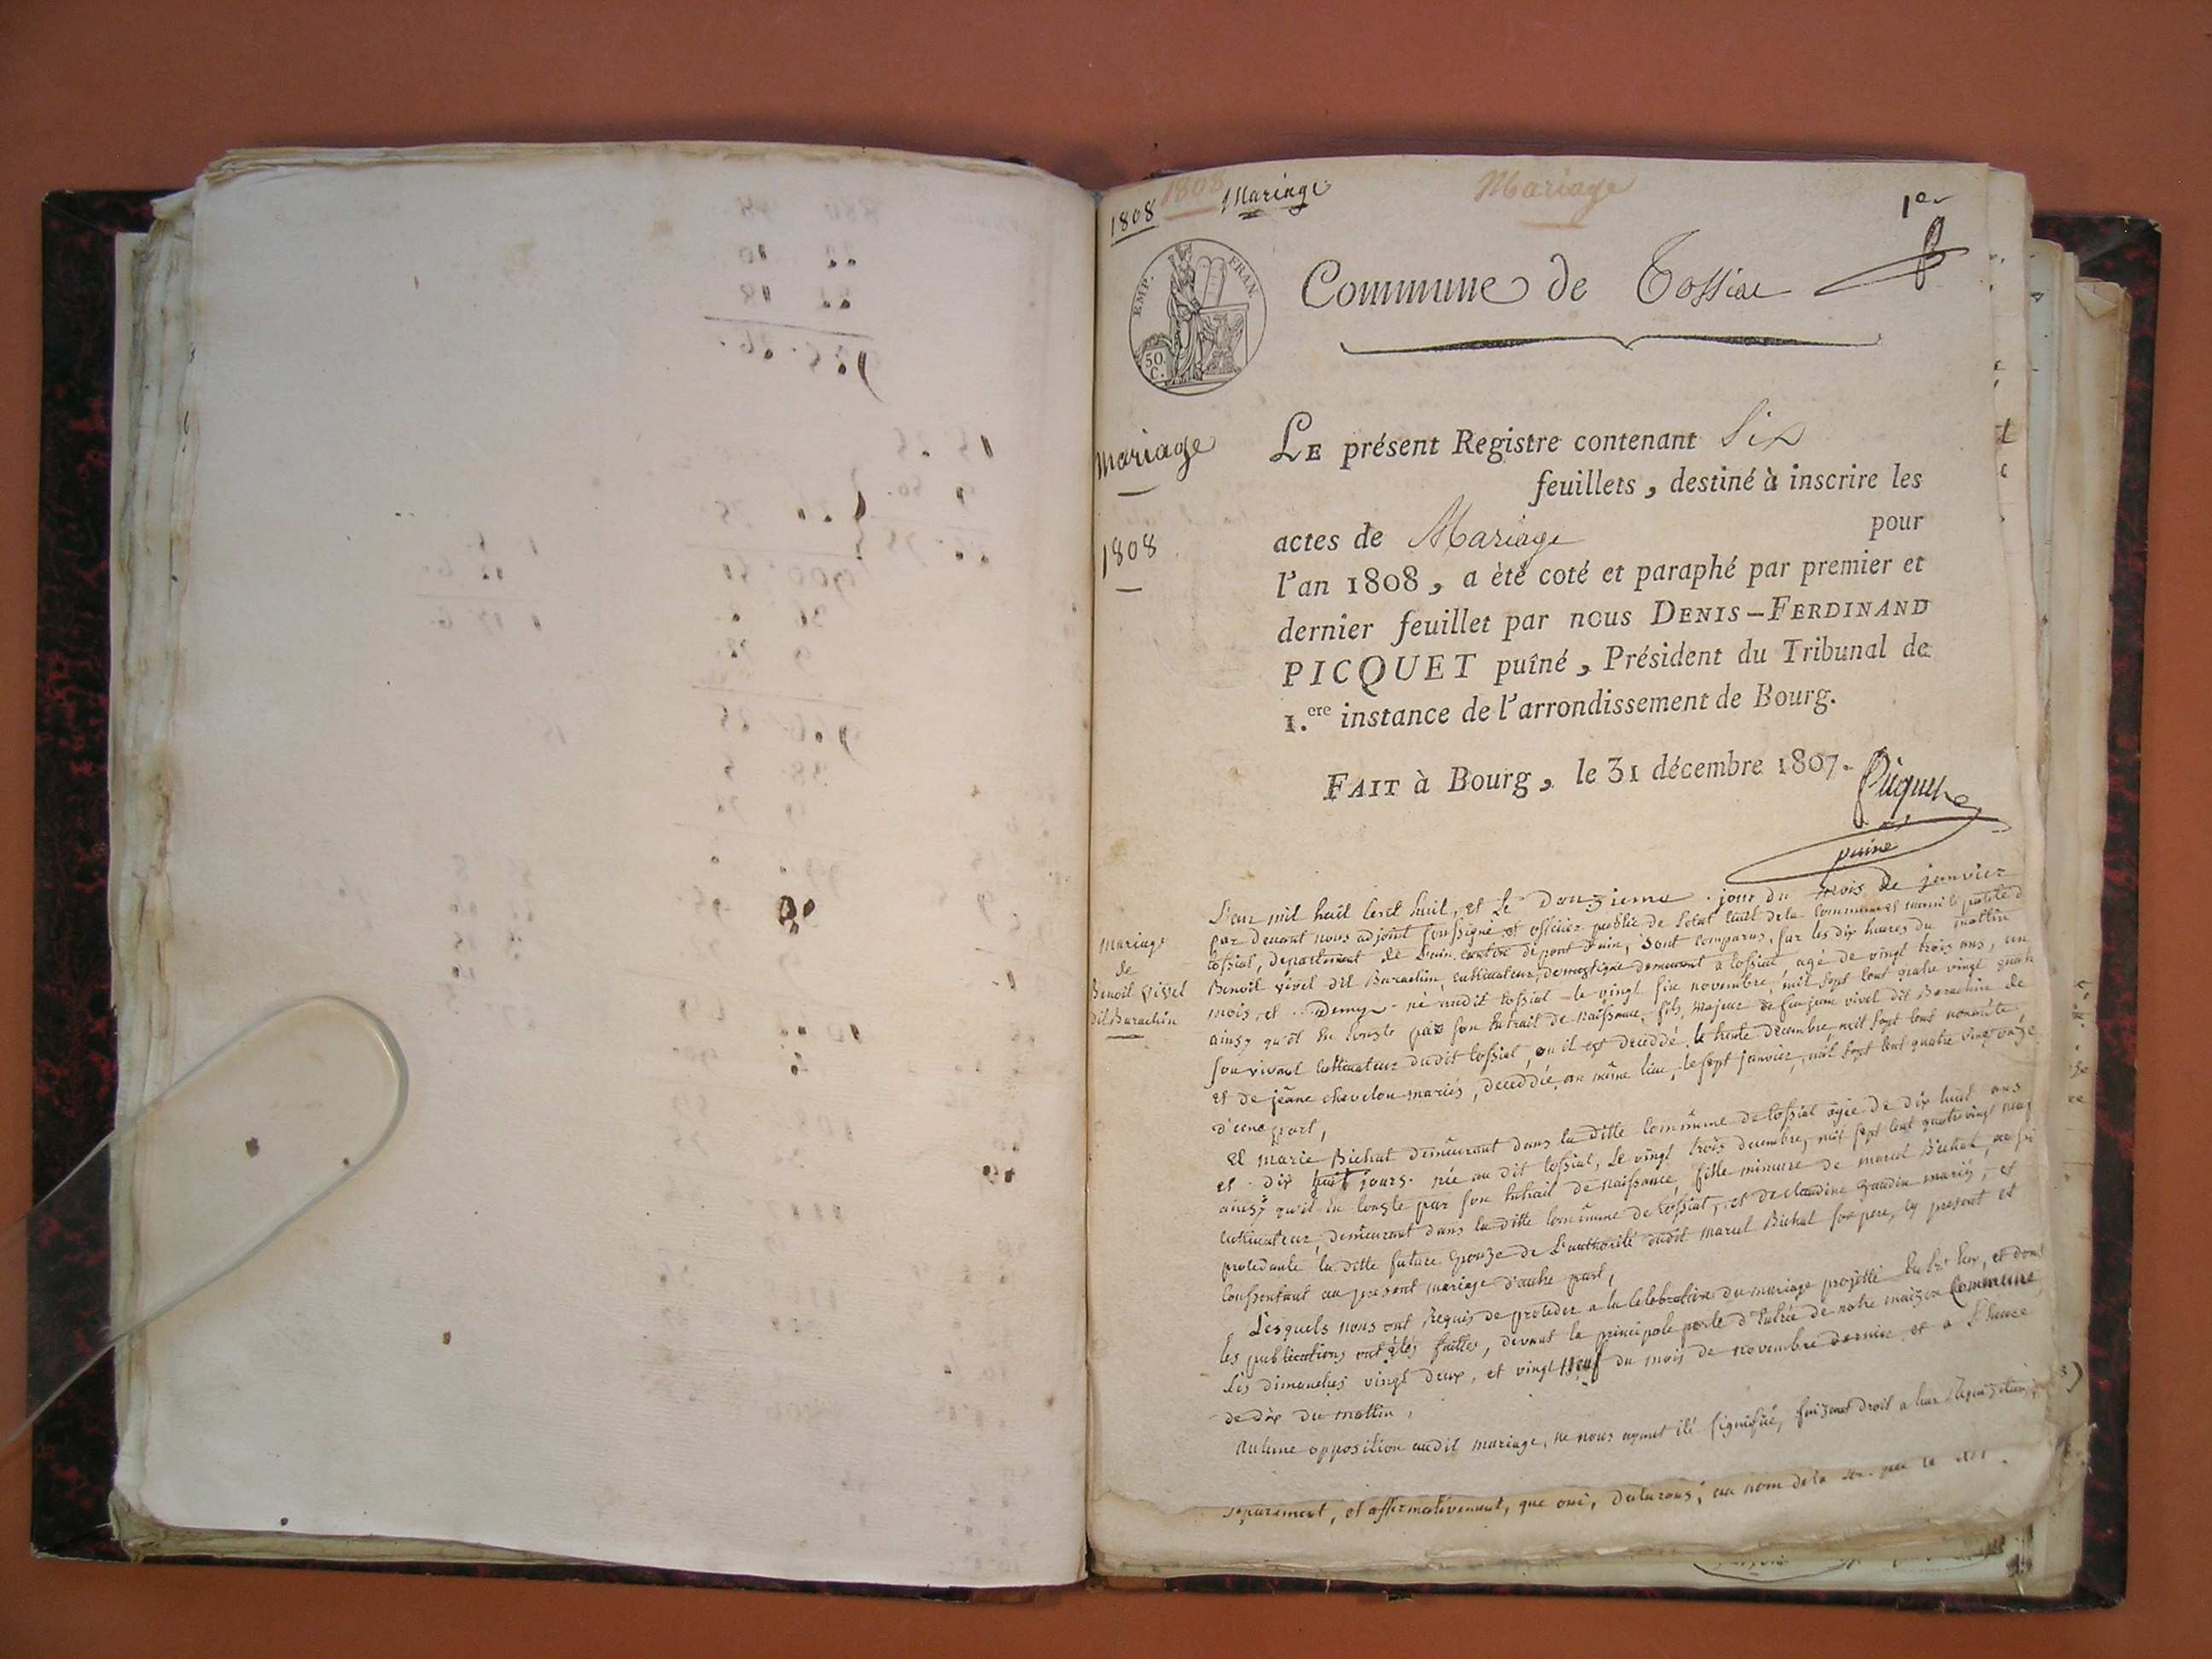 1808
1808
Mariage
Mariage
1er
EMP. FRAN.
50 C.
Commune de Tossiat
Mariage
1808
LE présent Registre contenant Six
feuillets, destiné à inscrire les
actes de Mariage pour
l'an 1808, a èté coté et paraphé par premier et
dernier feuillet par nous DENIS-FERDINAND
PICQUET puîné, Président du Tribunal de
1.ere instance de l'arrondissement de Bourg.
FAIT à Bourg, le 31 décembre 1807.
Picquet
puiné
mariage
de
Benoit vivel
dit Barachin
L'an mil huit cent huit, et le Douzieme jour du mois de janvier
par devant nous adjoint soussigné et officier public de l'etat civil de la commune
tossiat, departement de l'ain canton de pont d'ain, sont comparus, sur les dix heures du mattin
Benoit vivel dit Barachin, cultivateur, demeurant a tossiat, agé de vingt trois ans, un
mois, et Demy né audit tossiat le vingt six novembre, mil sept cent quatre vingt quatre
ainsy qu'il en conste par son extrait de naissance, fils majeur de feu jean vivel dit Barachin de
son vivant cultivateur dudit tossiat, ou il est deceddé le trente decembre mil sept cent nonante,
et de jeãne chevelon mariés, deceddée au même lieu, le sept janvier, mil sept cent quatre vingt onze
d'une part,
et marie Bichat demeurant dans la ditte commune de tossiat agée de dix huit ans
et dix huit jours née au dit tossiat, le vingt trois decembre, mil sept cent quatre vingt neuf
ainsy qu'il en conste par son extrait de naissance, fille mineure de marcel Bichat,
cultivateur, demeurant dans la ditte commune de tossiat, et de claudine gaudin mariés, et
procedante la ditte future epouze de l'authorité dudit marcel Bichat son pere, cy present et
consentant au present mariage d'autre part,
Lesquels nous ont requis de proceder a la celebration du mariage projetté entr'eux, et dont
les publications ont étés faittes, devant la principale porte d'entrée de notre maison Commune
Les dimanches vingt deux, et vingt neuf du mois de novembre dernier et a l'heure
de dix du mattin,
aucune opposition audit mariage, ne nous ayant été signifiée, faisant droit a leur requizition,
separement, et affirmativement, que oui, declarons, au nom de la